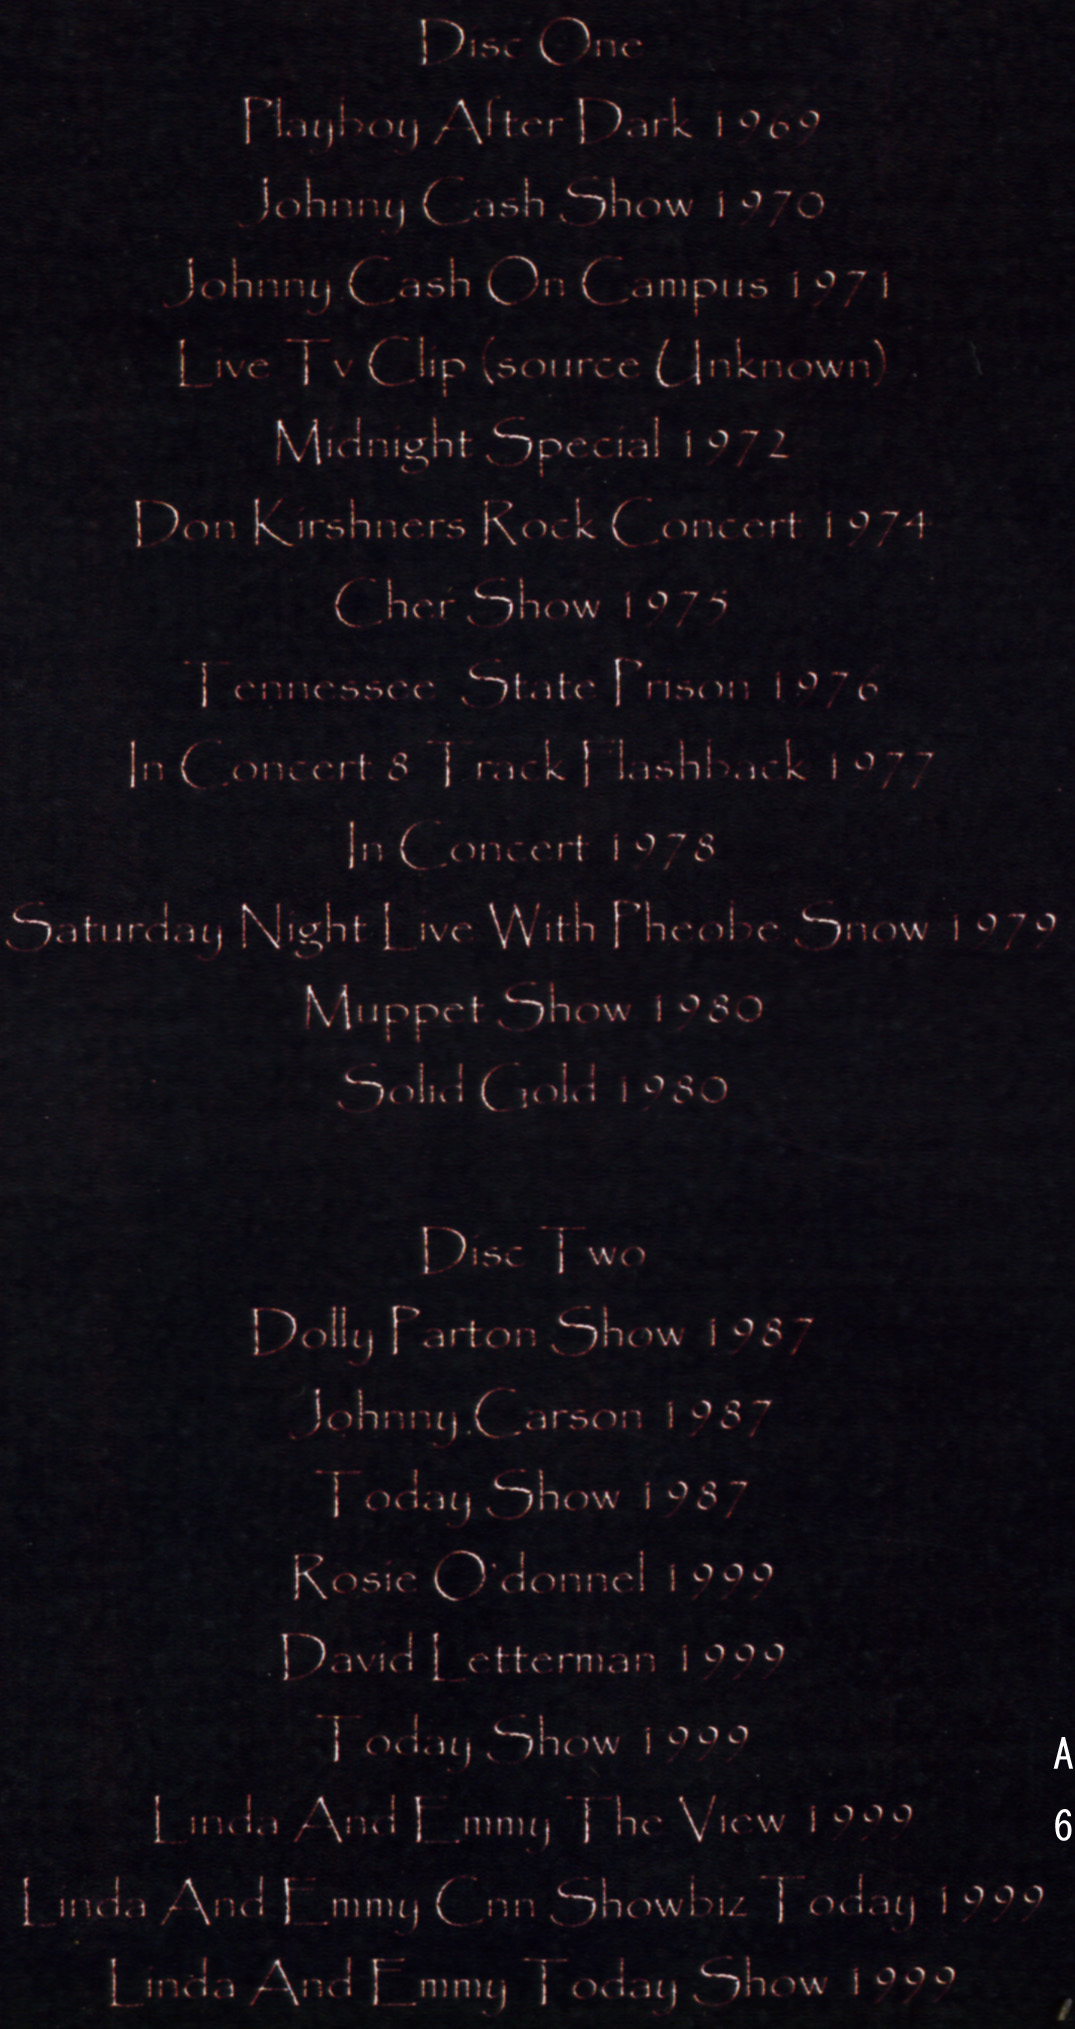 Disc One
Playboy After Dark 1969
Johnny Cash Show 1970
Johnny Cash On Campus 1971
Live Tv Clip (source Unknown)
Midnight Special 1972
Don Kirshners Rock Concert 1974
Cher Show 1975
Tennessee State Prison 1976
In Concert 8 Track Flashback 1977
In Concert 1978
Saturday Night Live With Pheobe Snow 1979
Muppet Show 1980
Solid Gold 1980
Disc Two
Dolly Parton Show 1987
Johnny Carson 1987
Today Show 1987
Rosie O'donnel 1999
David Letterman 1999
Today Show 1999
A
Linda And Emmy The View 1999
6
Linda And Emmy Cnn Showbiz Today 1999
Linda And Emmy Today Show 1999